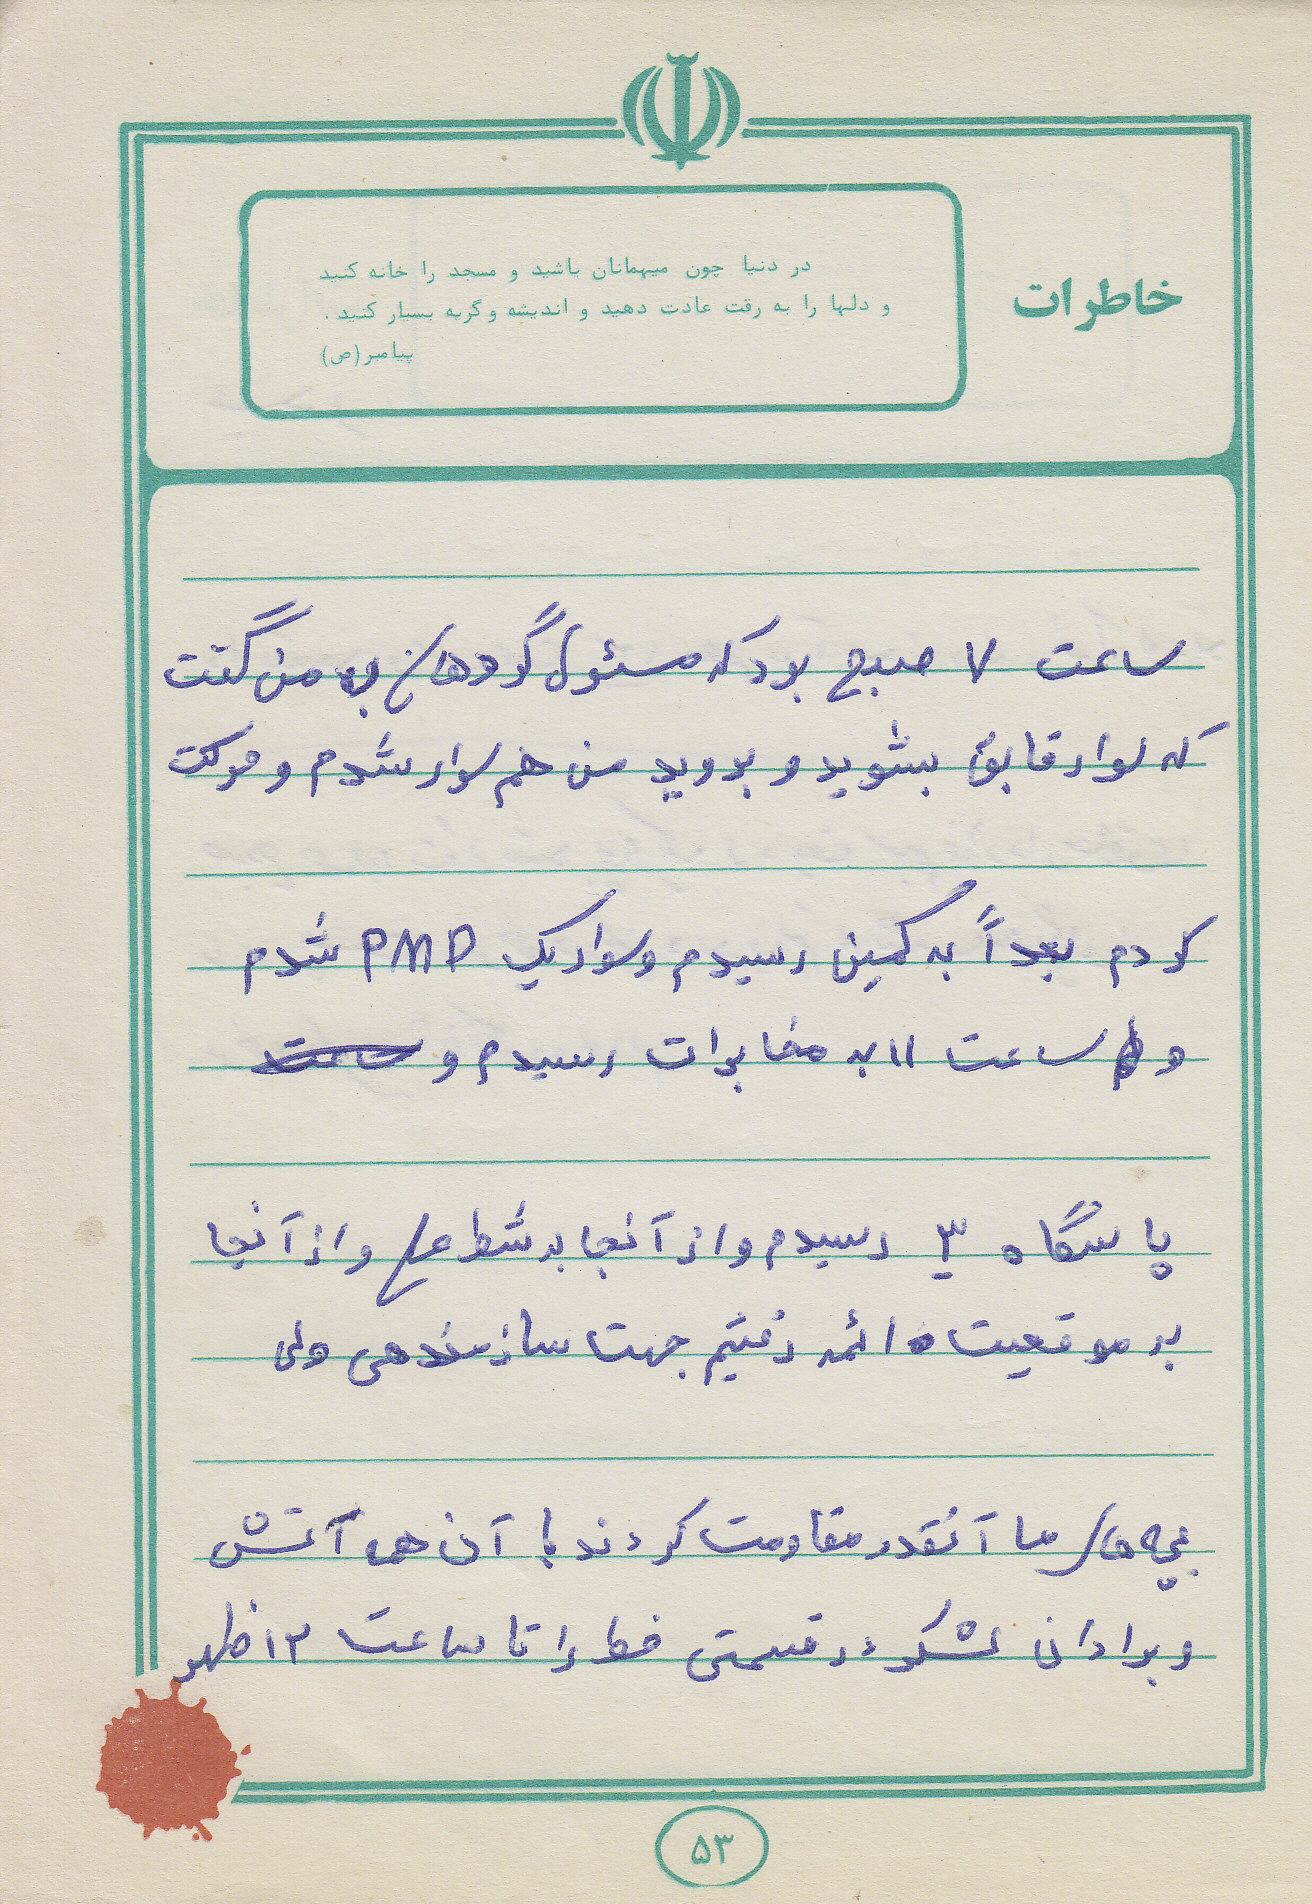 خاطرات
در دنیا چون میهمانان باشید و مسجد را خانه کنید
و دلها را به رقت عادت دهید و اندیشه و گریه بسیار کنید.
پیامبر(ص)
ساعت ۷ صبح بود که مسئول گردهان به من گفت
که سوار قایق بشوید و بروید من هم سوار شدم و حرکت
کردم بعداً به کمین رسیدم و سوار یک PMP شدم
و ساعت ۱۱ به مخابرات رسیدم و ساعت
پاسگاه ۳ رسیدم و از آنجا به شط علی و از آنجا
به موقعیت ائمه رفتیم جهت سازمندهی ولی
بچه های ما آنقدر مقاومت کردند با آن همه آتش
و برادران لشکر در قسمتی خط را تا ساعت ۱۲ ظهر
۵۳